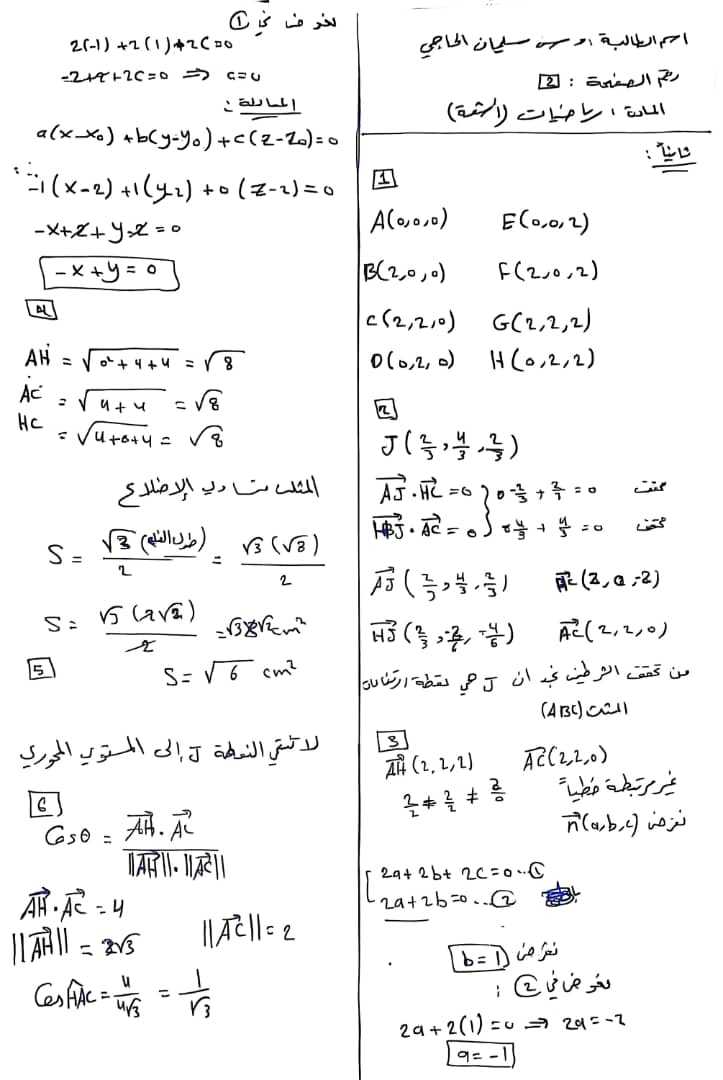 اسم الطالبة : سوسن سليمان الحاجي
رقم الصفحة : 2
المادة : رياضيات (التتمة)
ثانياً :
1
A(0,0,0) E(0,0,2)
B(2,0,0) F(2,0,2)
C(2,2,0) G(2,2,2)
D(0,2,0) H(0,2,2)
2
J(2/3, 4/3, 2/3)
AJ⃗ . HC⃗ = 0 } 0 - 2/3 + 2/3 = 0 محقق
HJ⃗ . AC⃗ = 0 } 4/3 + 4/3 = 0 محقق
AJ⃗ (2/3, 4/3, 2/3) HC⃗ (2, 0, -2)
HJ⃗ (2/3, -2/6, -4/6) AC⃗ (2,2,0)
من تحقق الشرطين نجد ان J هي نقطة ارتفاعات
المثلث (ABC)
3
AH⃗ (2,2,2) AC⃗ (2,2,0)
2/2 ≠ 2/2 ≠ 2/0 غير مرتبطة خطياً
نفرض n⃗(a,b,c)
2a+2b+2c=0 ..①
2a+2b=0 ..②
نفرض b=1
نعوض في ② :
2a+2(1)=0 ⇒ 2a=-2
a=-1
نعوض في ①
2(-1)+2(1)+2C=0
-2+2+2C=0 ⇒ C=0
المعادلة :
a(x-x₀)+b(y-y₀)+c(z-z₀)=0
∴ -1(x-2)+1(y-2)+0(z-2)=0
-x+2+y-2=0
-x+y=0
4
AH = √(0²+4+4) = √8
AC = √(4+4) = √8
HC = √(4+0+4) = √8
المثلث متساوي الإضلاع
S = √3 (طول الضلع) / 2 = √3 (√8) / 2
S = √3 (2√2) / 2 = √3×√2 cm²
S = √6 cm²
5
لا تنتمي النقطة J إلى المستوي المحوري
6
Cosθ = AH⃗ . AC⃗ / ||AH⃗|| . ||AC⃗||
AH⃗ . AC⃗ = 4
||AH⃗|| = 2√3 ||AC⃗|| = 2
Cos HAC = 4/4√3 = 1/√3